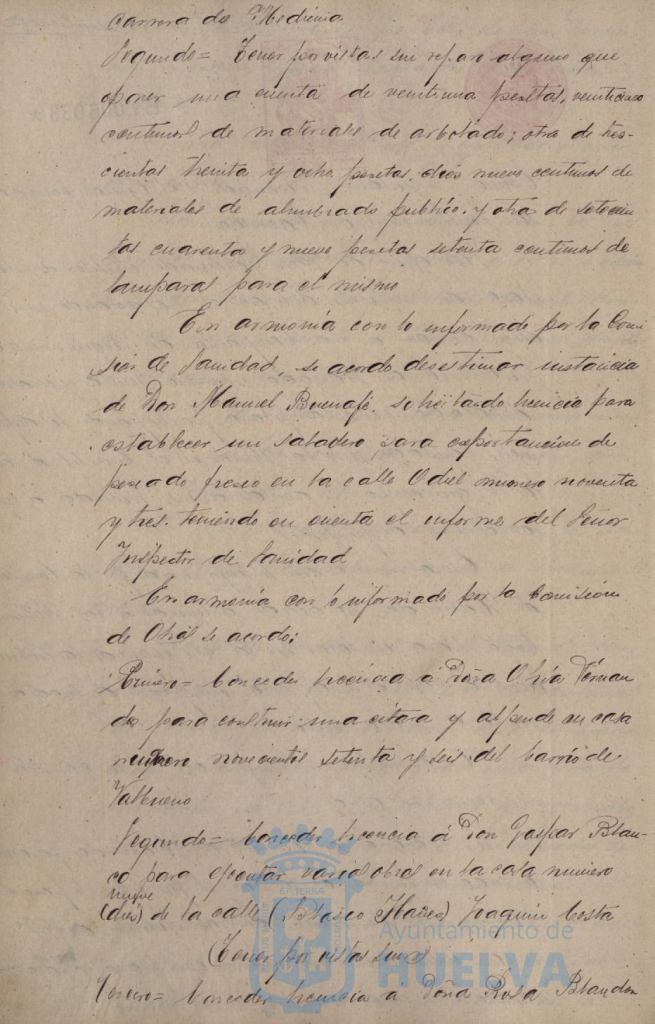 carrera de Medicina
Segundo= Tener por vistas sin reparo alguno que
oponer una cuenta de veintiuna pesetas, veinticinco
centimos de materiales de arbolado; otra de tres-
cientas treinta y ocho pesetas, diez nueve centimos de
materiales de alumbrado publico. y otra de setecien
tas cuarenta y nueve pesetas setenta centimos de
lamparas para el mismo
En armonía con lo informado por la Comi
sión de Sanidad, se acordo desestimar instancia
de Don Manuel Buenafé, solicitando licencia para
establecer un saladero para exportancion de
pescado fresco en la calle Odiel numero noventa
y tres. teniendo en cuenta el informe del Señor
Inspector de Sanidad
En armonía con lo informado por la Comisión
de Obras se acordo;
Primero= Conceder licencia á Doña Olivia Fernan
dez para construir una citara y alpende en casa
numero novecientos setenta y seis del barrio de
Segundo= Conceder licencia á Don Gaspar Blan-
co para ejecutar varias obras en la casa numero
nueve
(dos) de la calle (Blasco Ibañez) Joaquin Costa
(Tener por vistas sin re)
Tercero= Conceder licencia a Doña Rosa
ET TERRA
Ayuntamiento de
HUELVA